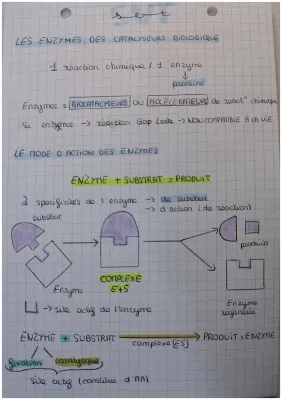 SVT
LES ENZYMES, DES CATALYSEURS BIOLOGIQUE
1 réaction chimique / 1 enzyme
protéine
Enzymes = BIOCATALYSEURS OU ACCÉLÉRATEURS de react° chimique
Si enzymes → réaction trop lente → NON COMPATIBLE À LA VIE
LE MODE D'ACTION DES ENZYMES
ENZYME + SUBSTRAT = PRODUIT
2 spécificités de l'enzyme → de substrat
→ d'action (de réaction)
substrat
produits
Enzyme
COMPLEXE
E+S
Enzyme
→ site actif de l'enzyme
ENZYME + SUBSTRAT → PRODUIT + ENZYME
complexe [ES]
fixation catalytique
Site actif (constitué d'AA)